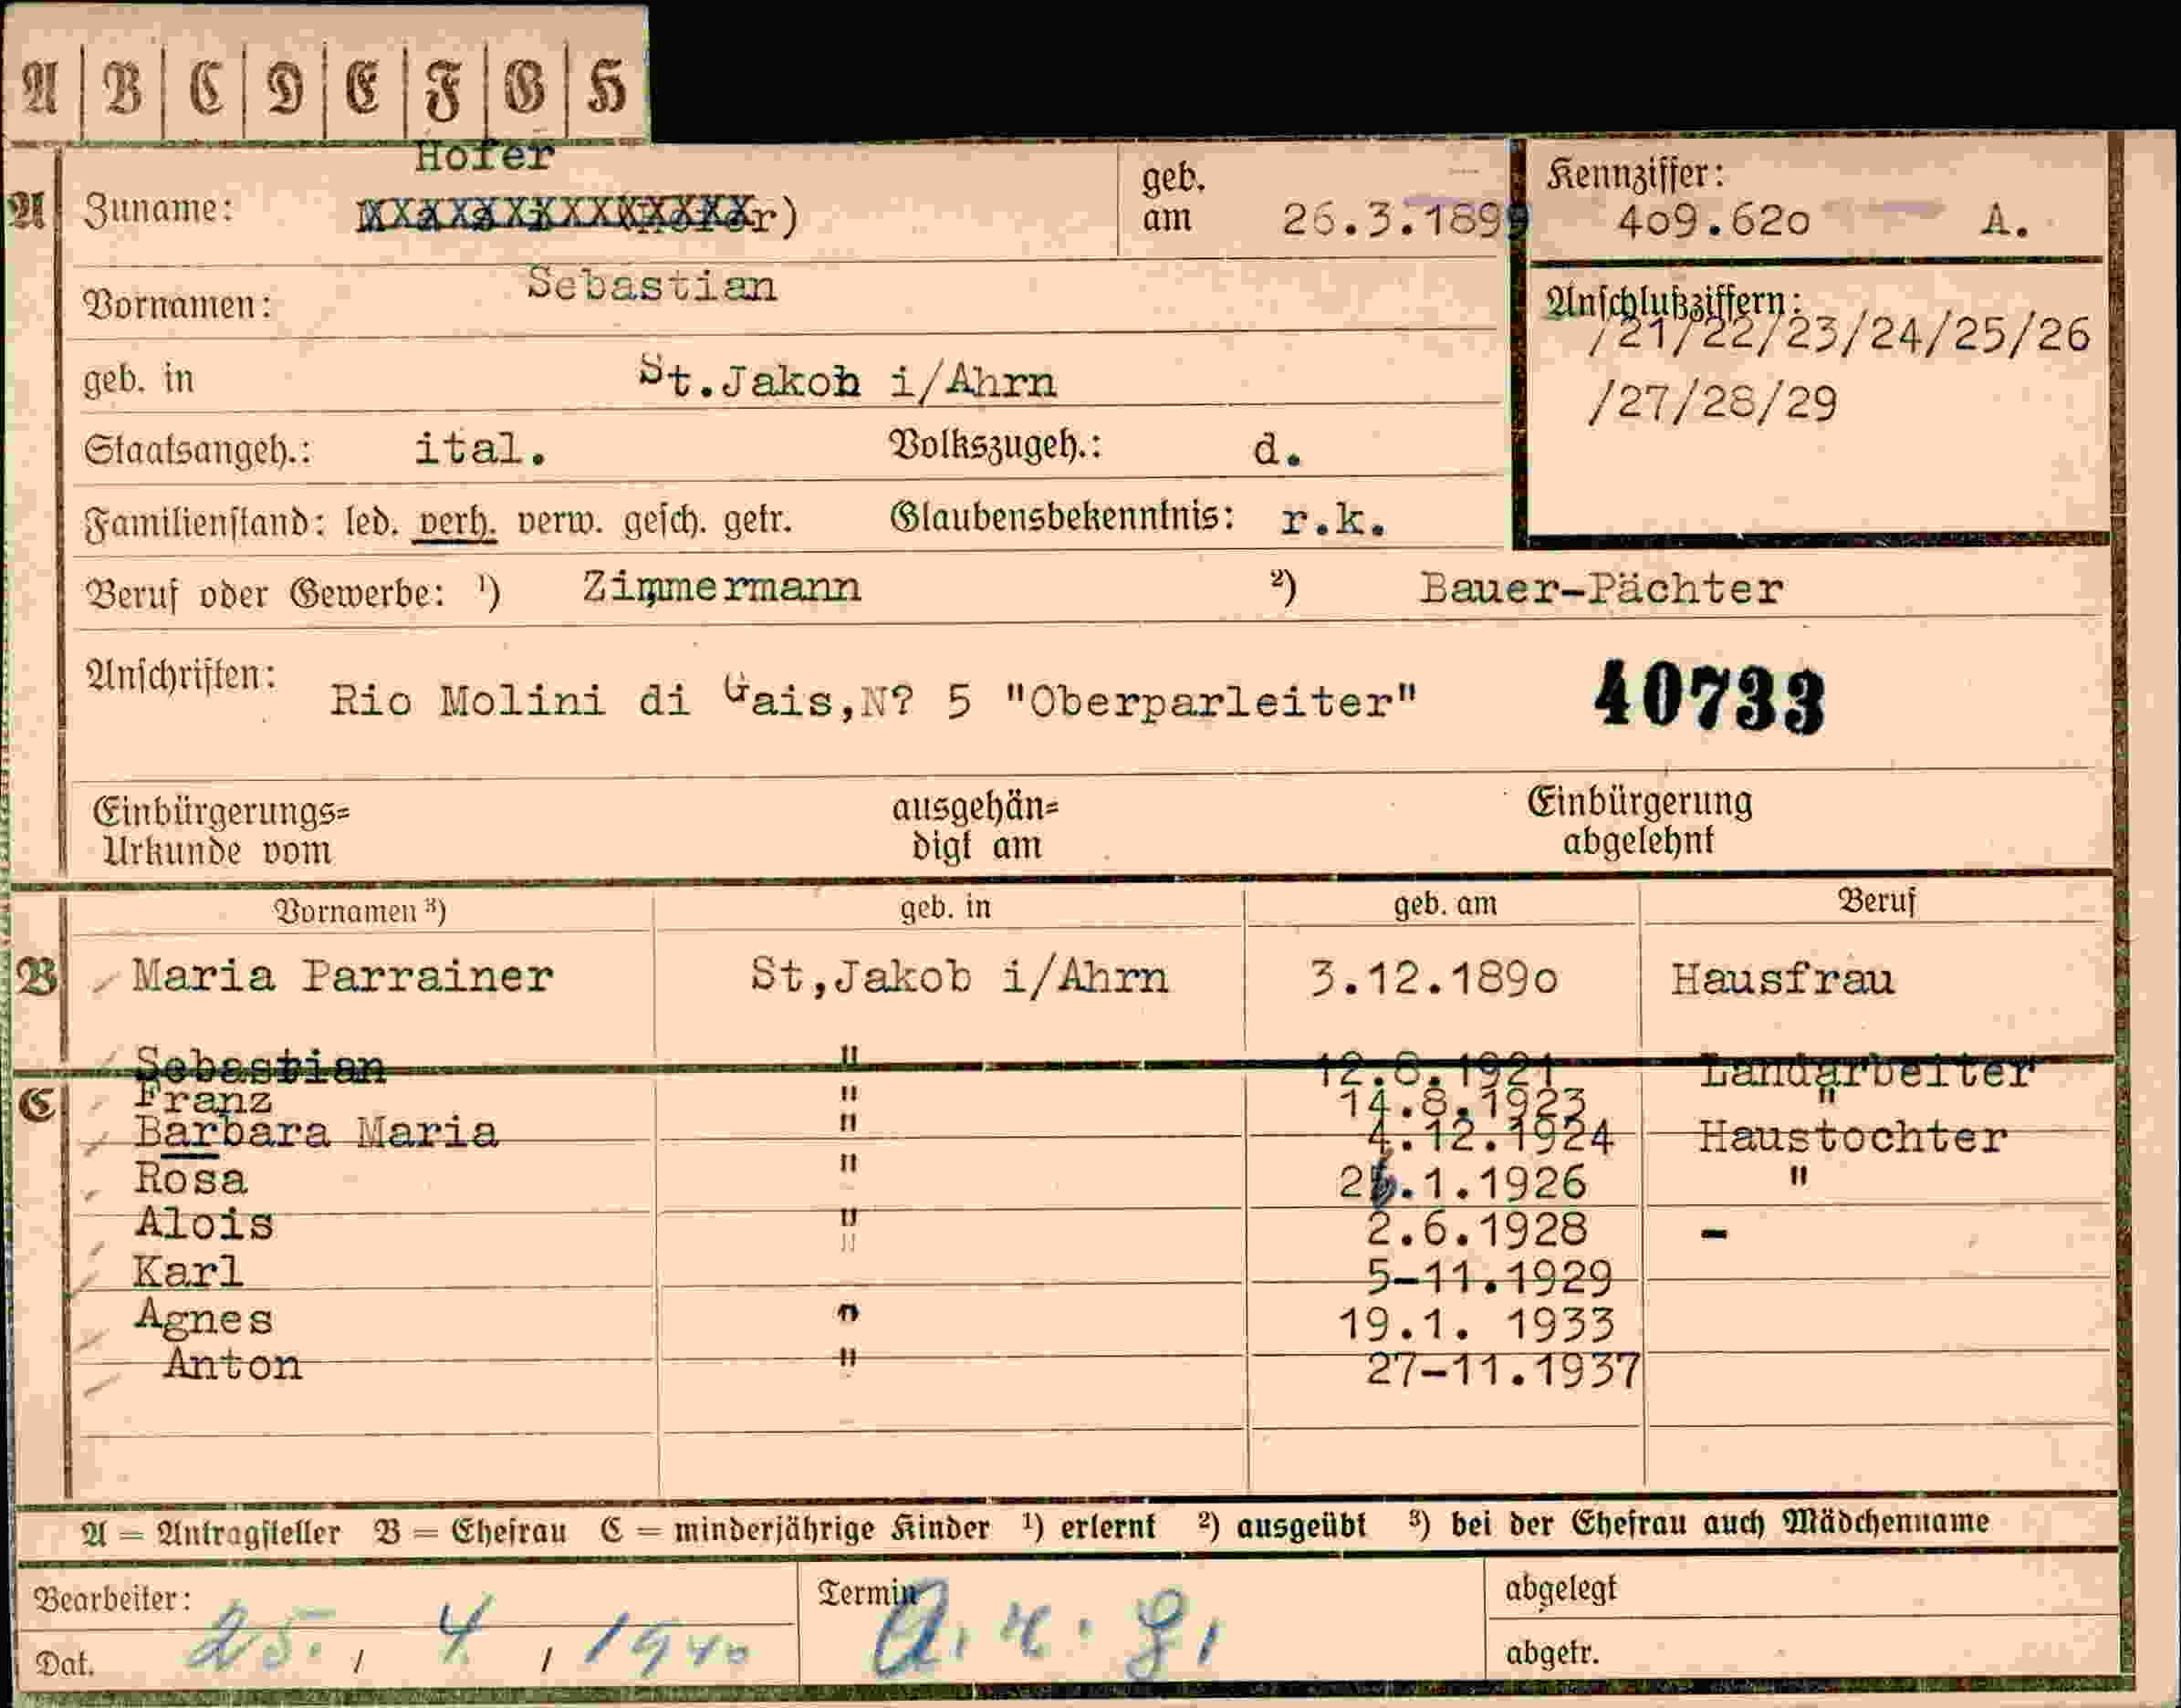 A B C D E F G H
Hofer
A Zuname: r) geb. am 26.3.1899 Kennziffer: 409.620 A.
Vornamen: Sebastian
Anschlußziffern: /21/22/23/24/25/26
/27/28/29
geb. in St.Jakob i/Ahrn
Staatsangeh.: ital. Volkszugeh.: d.
Familienstand: led. verh. verw. gesch. getr. Glaubensbekenntnis: r.k.
Beruf oder Gewerbe: ¹) Zimmermann ²) Bauer-Pächter
Anschriften: Rio Molini di Gais,N? 5 "Oberparleiter" 40733
Einbürgerungs= Urkunde vom ausgehän= digt am Einbürgerung abgelehnt
Vornamen ³) geb. in geb. am Beruf
B Maria Parrainer St,Jakob i/Ahrn 3.12.1890 Hausfrau
Sebastian " 12.8.1921 Landarbeiter
C Franz " 14.8.1923 "
Barbara Maria " 4.12.1924 Haustochter
Rosa " .1.1926 "
Alois " 2.6.1928 -
Karl " 5-11.1929
Agnes " 19.1. 1933
Anton " 27-11.1937
A = Antragsteller B = Ehefrau C = minderjährige Kinder ¹) erlernt ²) ausgeübt ³) bei der Ehefrau auch Mädchenname
Bearbeiter: Termin abgelegt
Dat. 25. / 4 / 1940 abgetr.